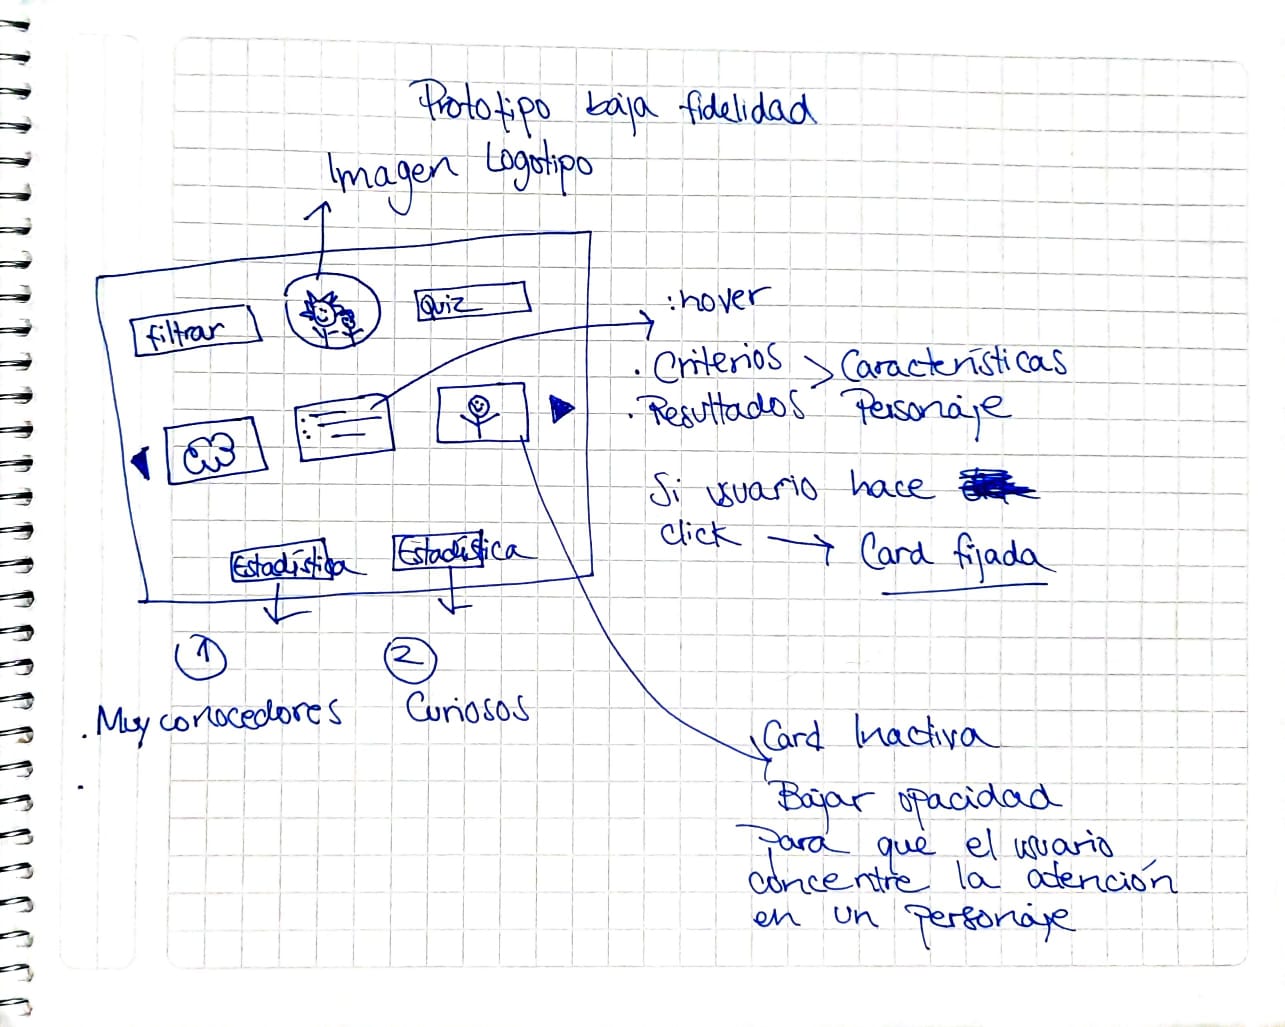 Prototipo baja fidelidad
Imagen Logotipo
filtrar
Quiz
:hover
. Criterios > Características
. Resultados Personaje
Si usuario hace
click → Card fijada
Estadística
Estadística
1
2
. Muy conocedores
Curiosos
.
Card Inactiva
Bajar opacidad
para que el usuario
concentre la atención
en un personaje